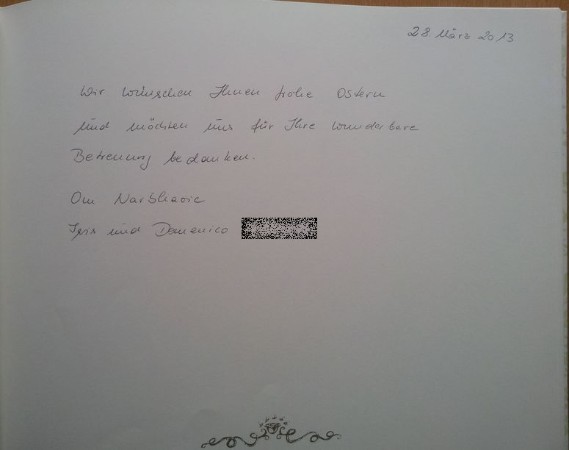 28. März 2013
Wir wünschen Ihnen frohe Ostern
und möchten uns für Ihre wunderbare
Betreuung bedanken.
Om
Iris und Domenico